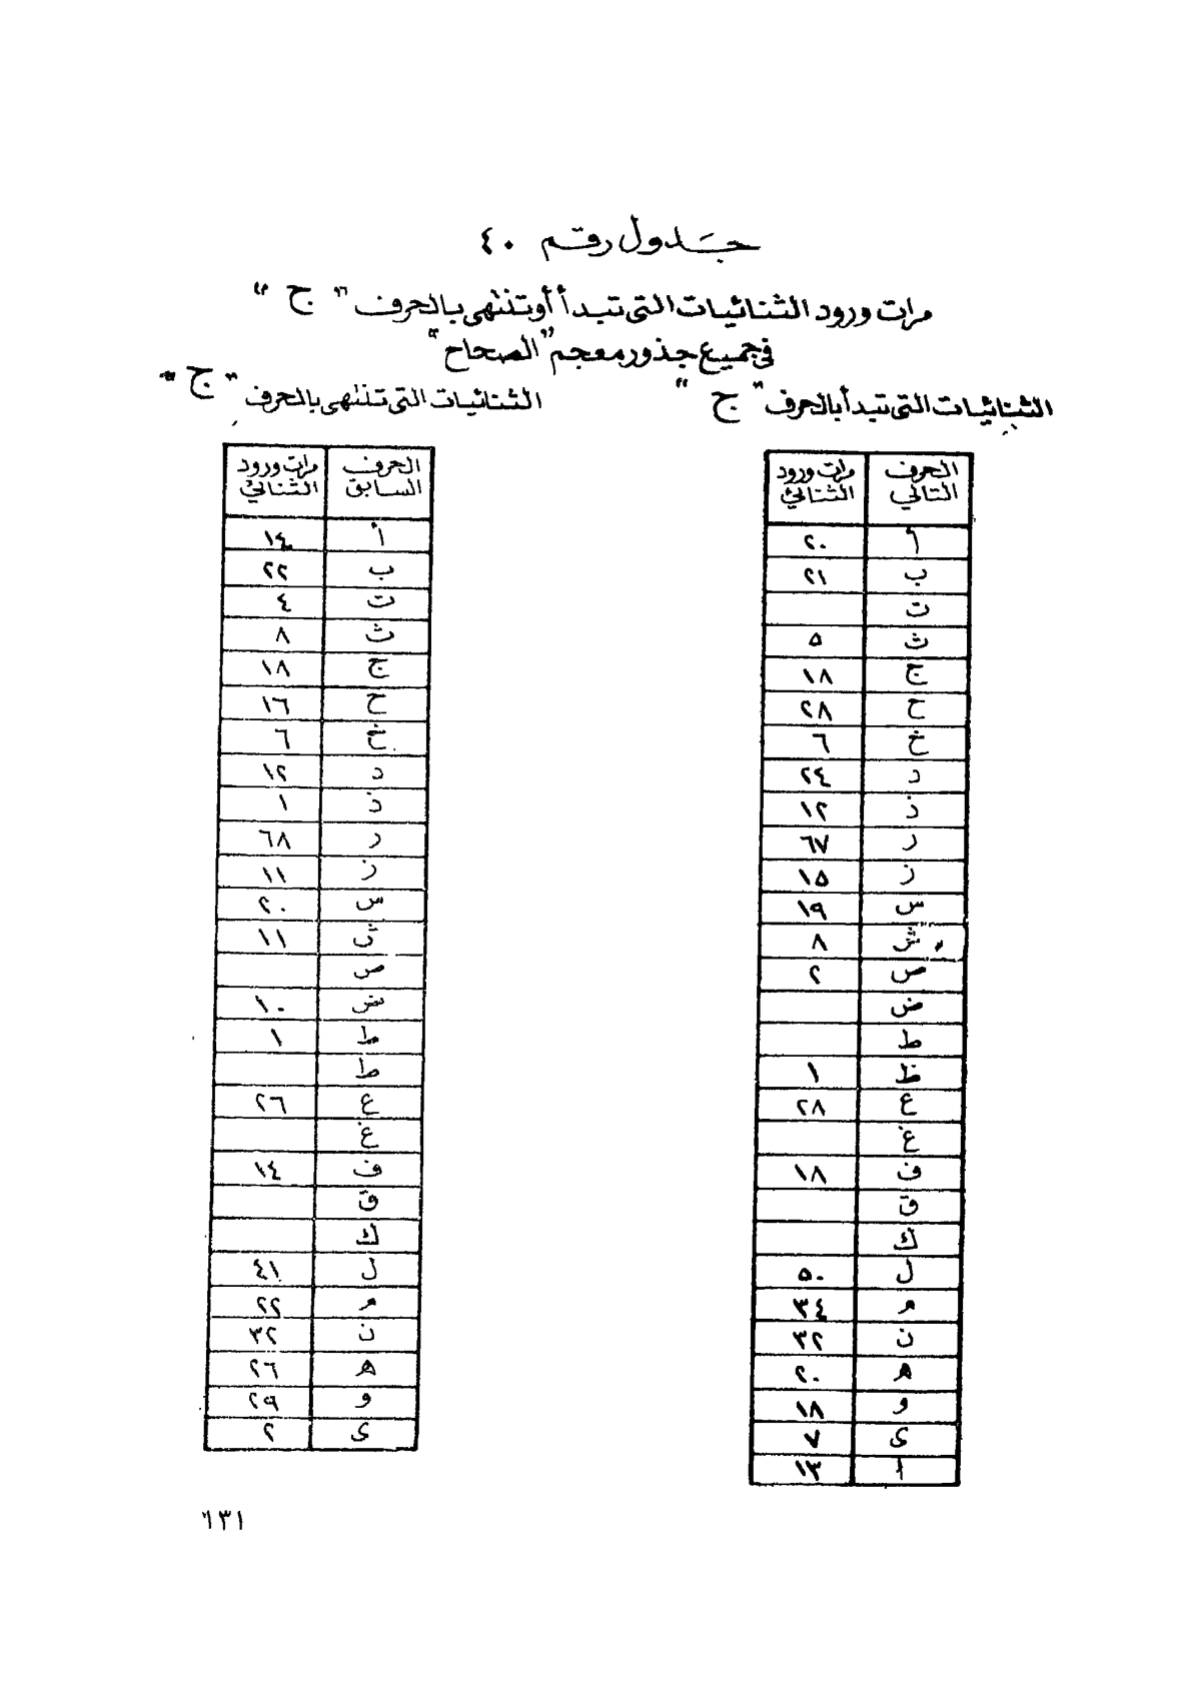 جدول رقم ٤٠
مرات ورود الثنائيات التى تبدأ أو تنتهى بالحرف " ج "
فى جميع جذور معجم "الصحاح"
الثنائيات التى تبدأ بالحرف " ج "
الحرف التالي مرات ورود الثنائي
أ ٢٠
ب ٢١
ت
ث ٥
ج ١٨
ح ٢٨
خ ٦
د ٢٤
ذ ١٢
ر ٦٧
ز ١٥
س ١٩
ش ٨
ص ٢
ض
ط
ظ ١
ع ٢٨
غ
ف ١٨
ق
ك
ل ٥٠
م ٣٤
ن ٣٢
ه ٢٠
و ١٨
ى ٧
ا ١٣
الثنائيات التى تنتهى بالحرف " ج "
الحرف السابق مرات ورود الثنائي
أ ١٤
ب ٢٢
ت ٤
ث ٨
ج ١٨
ح ١٦
خ ٦
د ١٢
ذ ١
ر ٦٨
ز ١١
س ٢٠
ش ١١
ص
ض ١٠
ط ١
ط
ع ٢٦
غ
ف ١٤
ق
ك
ل ٤١
م ٢٢
ن ٣٢
ه ٢٦
و ٢٩
ى ٢
١٣١